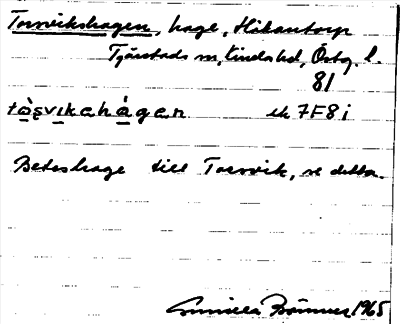 Torsvikshagen, hage, Håkantorp
Tjärstads sn, Kinda hd, Östg. l.
81
tò̱ṣvi̱kahá̱gen ek 7F8i
Beteshage till Torsvik, se detta.
Gunilla Brömner 1965